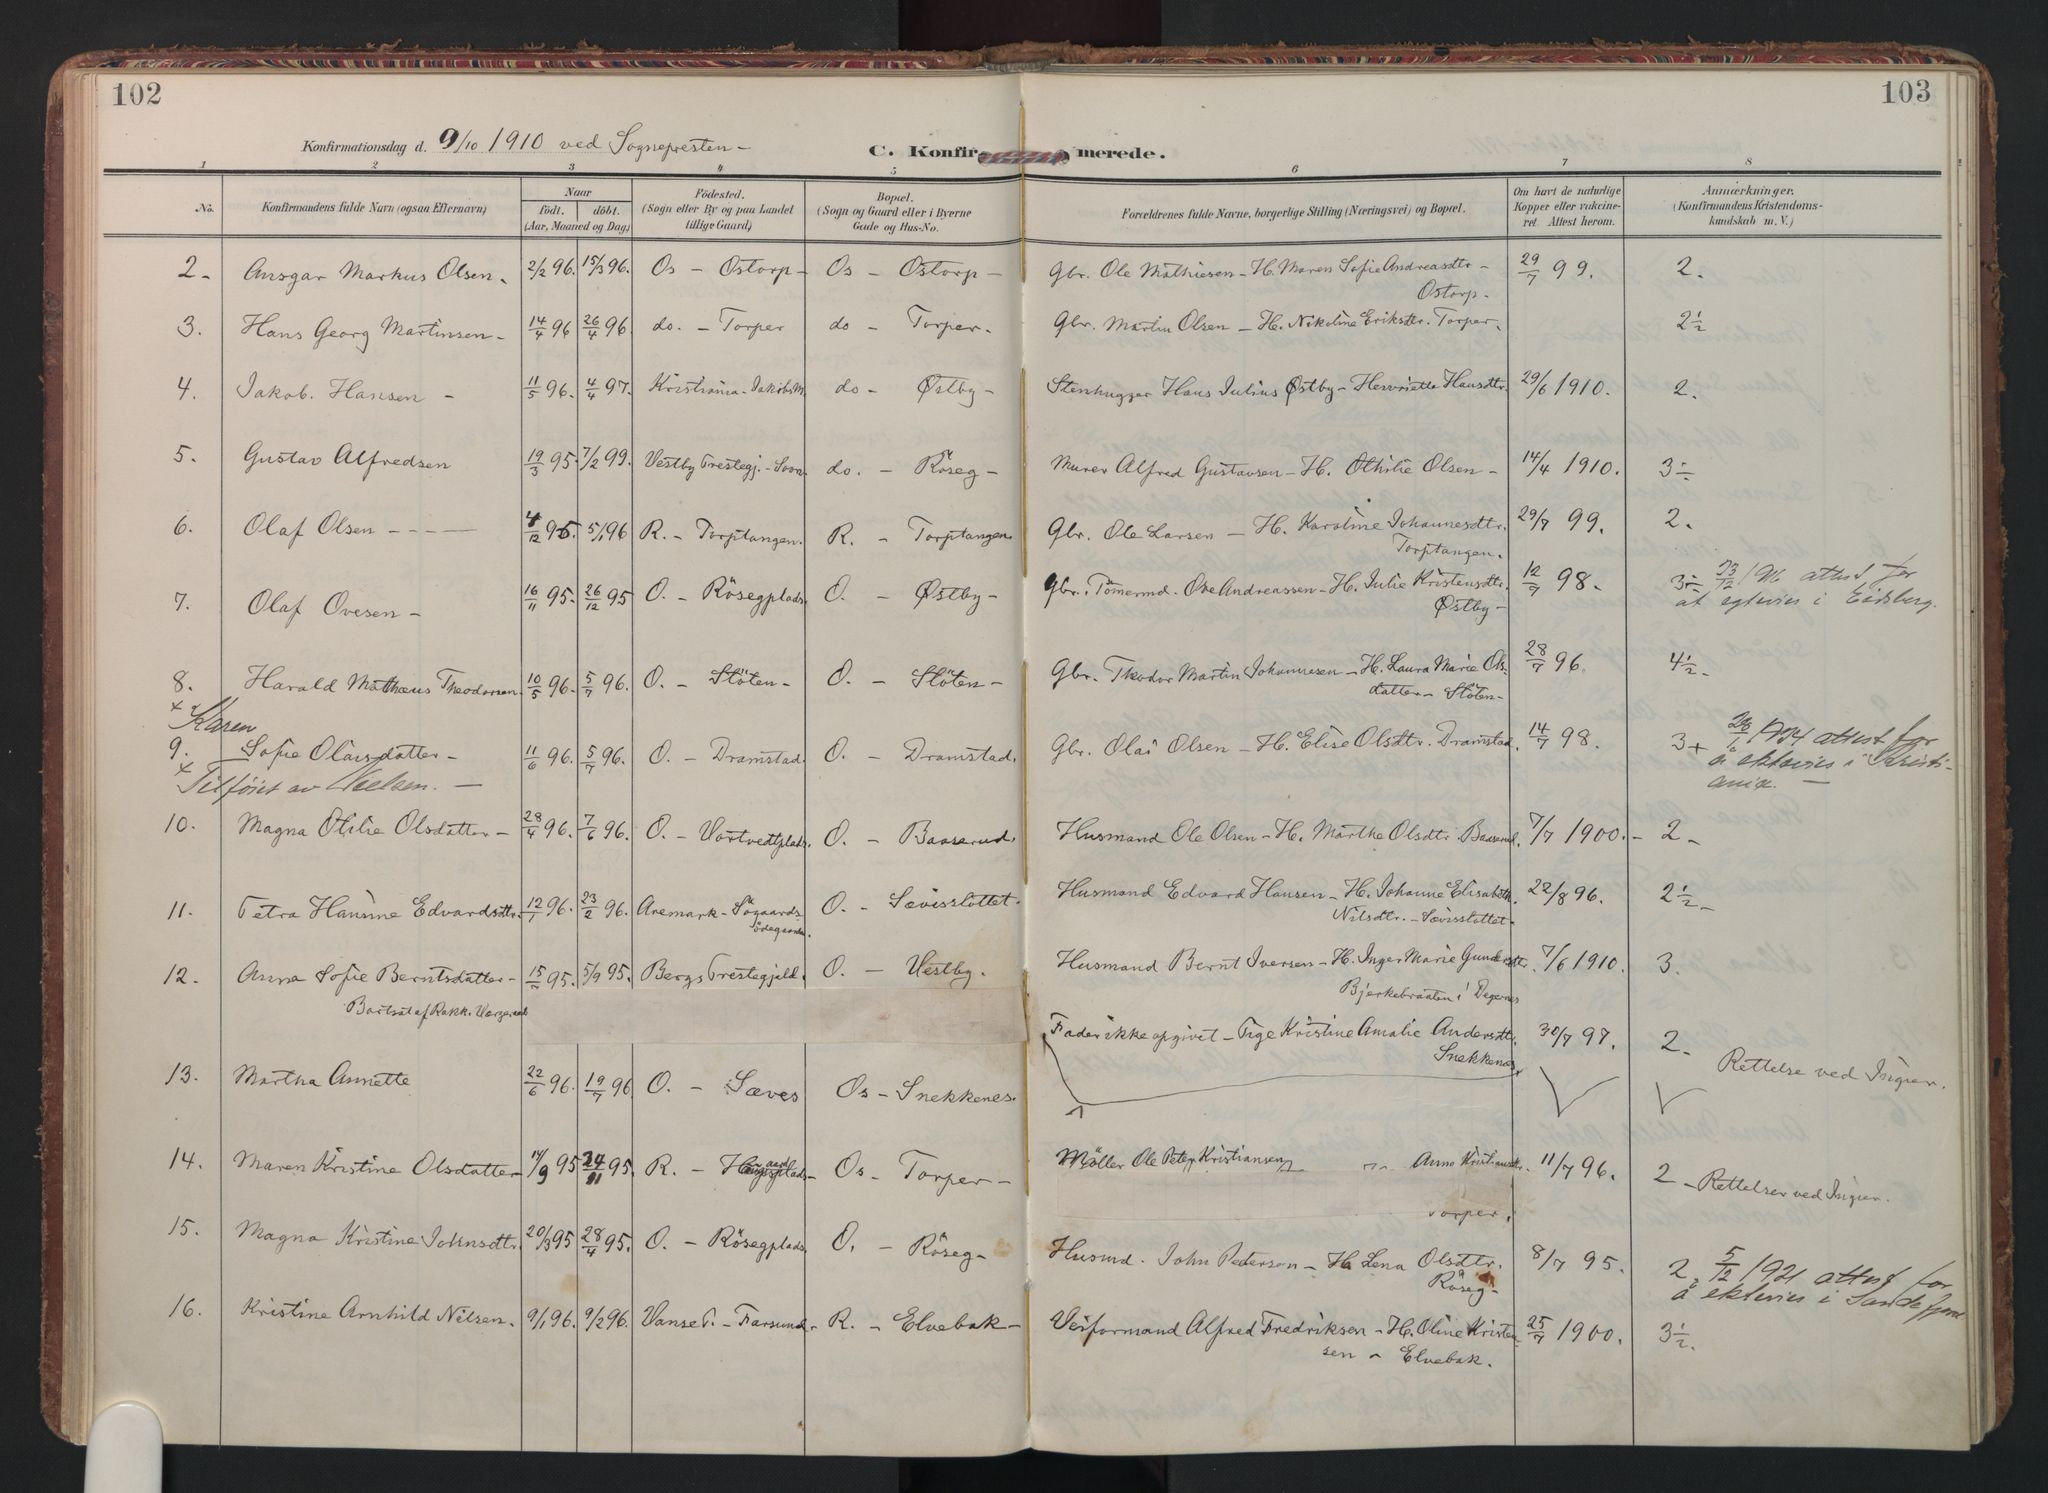 102
103
Konfirmationsdag d. 9/10 1910 ved Sognepresten -
C. Konfirmerede.
1 2 3 4 5 6 7 8
No. Konfirmandens fulde Navn (ogsaa Efternavn) Naar født. døbt. (Aar, Maaned og Dag) Fødested. (Sogn eller By og paa Landet tillige Gaard) Bopæl. (Sogn og Gaard eller i Byerne Gade og Hus-No. Forældrenes fulde Navne, borgerlige Stilling (Næringsvei) og Bopæl. Om havt de naturlige Kopper eller vaccineret. Attest herom. Anmærkninger. (Konfirmandens Kristendomskundskab m. V.)
2 - Ansgar Markus Olsen - 2/2 96. 15/3 96. Os - Ostorp - Os - Ostorp - Gbr. Ole Mathiesen - H. Maren Sofie Andreasdtr - 29/7 99. 2.
Ostorp -
3. Hans Georg Martinsen - 14/4 96 26/4 96. do. - Torper do - Torper. Gbr. Martin Olsen - H. Nikoline Eriksdtr. Torper. 2 1/2
4. Jakob. Hansen - 11/5 96. 4/4 97. Kristiania - Jakobs M. do - Østby - Stenhugger Hans Julius Østby - Henriette Hansdtr. 29/6 1910. 2.
5. Gustav Alfredsen 19/3 95. 7/2 99. Vestby Prestegj. - do. - Röseg - Murer Alfred Gustavsen - H. Othilie Olsen - 14/4 1910. 3 ÷
6. Olaf Olsen - - - - 4/12 95 5/1 96 R. - Torptangen. R. - Torptangen Gbr. Ole Larsen - H. Karoline Johannesdtr. 29/7 99. 2.
Torptangen.
7. Olaf Ovesen - 16/11 95. 26/12 95 O. - Rösegplads. O. - Østby - Gbr. Tömermd. Ove Andreassen - H. Julie Kristensdtr. 12/7 98. 3 ÷ attest for
Østby - at egtevies i Eidsberg.
8. Harald Mathæus Theodorsen 10/5 96. 5/7 96. O. - Slöten - O. - Slöten - Gbr. Theodor Martin Johannesen - H. Laura Marie Ols- 28/7 96. 4 1/2 -
datter - Slöten -
x Karen
9. Sofie Olaisdatter - 11/6 96. 5/7 96. O. - Dramstad. O. - Dramstad. Gbr. Olai Olsen - H. Elise Olsdtr. Dramstad. 14/7 98. 3 + attest for
x Tilføiet av - å ektevies i Kristi-
ania. -
10. Magna Othilie Olsdatter - 28/4 96. 7/6 96. O. - Vortvedtplads. O. - Baaserud. Husmand Ole Olsen - H. Martha Olsdtr Baaserud. 7/7 1900. - 2 -
11. Petra Hansine Edvardsdtr. 12/1 96. 23/2 96. Aremark - Søgaards O. - Sævisslottet. Husmand Edvard Hansen - H. Johanne Elisabeth 22/8 96. 2 1/2 -
ødegaarden. Nilsdtr. - Sævisslottet -
12. Anna Sofie Berntsdatter - 15/7 95. 5/9 95. Bergs Prestegjeld. O. - Vestby. Husmand Bernt Iversen - H. Inger Marie Gundersdtr. 7/6 1910. 3.
Bortsat af Rakk. Bjerkebraaten i Degernes
Fader ikke opgivet - Pige Kristine Amalie Andersdtr. 30/7 97. 2 -
Snekkenes
13. Martha Annette 22/6 96. 19/7 96 O. - Sæves Os - Snekkenes. Rettelse ved Ingier.
14. Maren Kristine Olsdatter - 14/9 95 24/11 95. R. - Os - Torper - Møller Ole Peter Kristiansen Anne Kristiansdtr. 11/7 96. 2 - Rettelser ved Ingier.
Torper.
15. Magna Kristine Johnsdtr. 20/3 95 28/4 95. O. - Rösegplads. O. - Röseg - Husmd. John Pedersen - H. Lena Olsdtr. 8/7 95. 2. 5/12 1921 attest for
Röseg - å ektevies i Sandefjord.
16. Kristine Arnhild Nilsen. 9/1 96. 9/2 96. Vanse P. - Farsund - R. - Elvebak - Veiformand Alfred Fredriksen - H. Oline Kristen- 25/7 1900. 3 1/2.
sen - Elvebak.